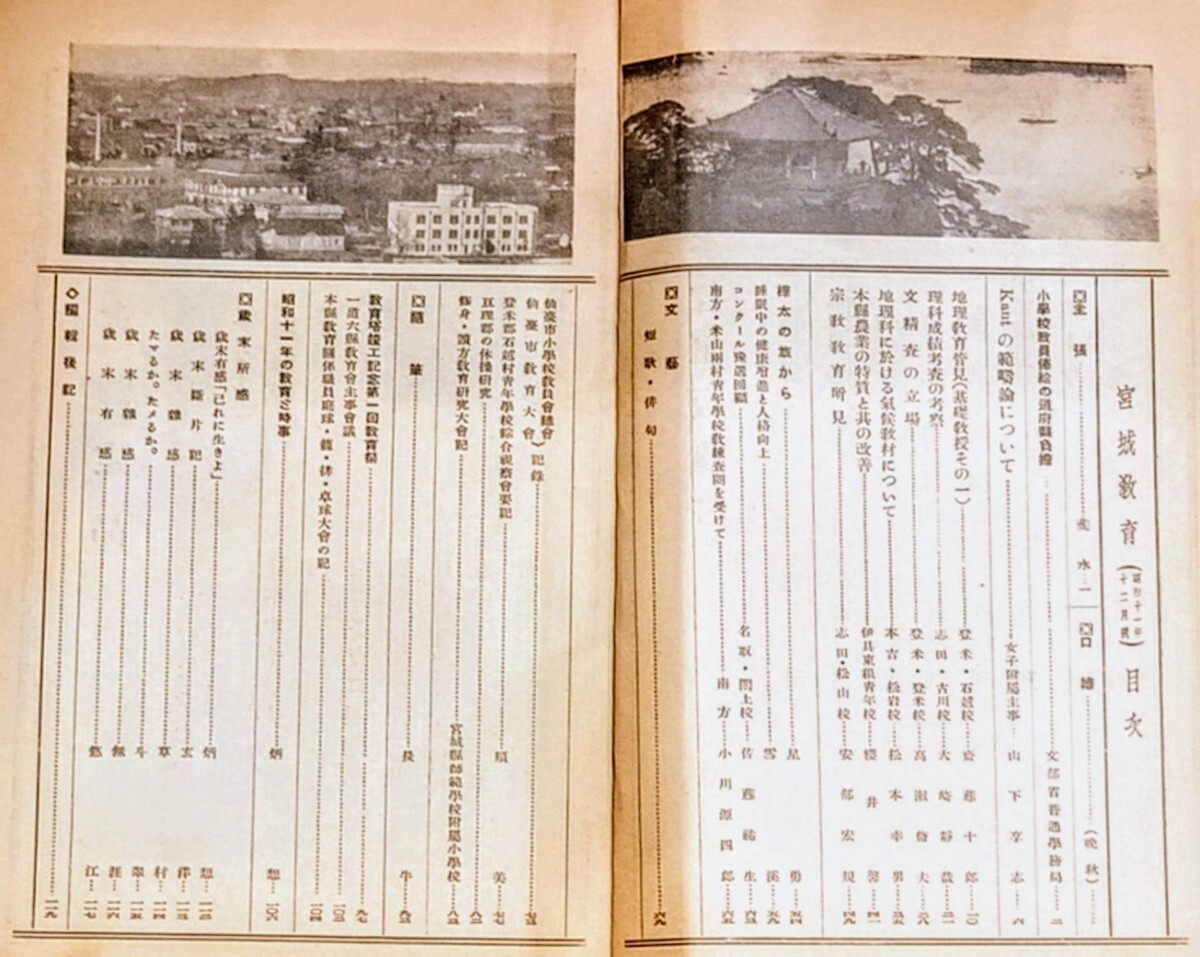 宮城教育（昭和十一年十二月號）目次
□主張……………水…一
□口繪……………（晩秋）……
小學校教員俸給の道府縣負擔……………文部省普通學務局…二
Kantの範疇論について……………女子附屬主事…山下享志…六
地理教育管見（基礎教授その一）……………登米・石越校…齋藤十郎…一〇
理科成績考査の考察……………志田・古川校…大崎靜哉…二一
文精査の立場……………登米・登米校…高瀬脩夫…二八
地理科に於ける氣候教材について……………本吉・松岩校…松本幸男…三五
本縣農業の特質と其の改善……………伊具東根青年校…櫻井馨…四一
宗教教育所見……………志田・松山校…安部宏規…四九
樺太の旅から……………星勇…五四
睡眠中の健康增進と人格向上……………雪溪…五九
コンクール豫選回顧……………名取・閖上校…佐藤祐生…六三
南方・米山兩村青年學校教練査閱を受けて……………南方…小川源四郎…六五
□文藝
短歌・俳句……………六九
仙臺市小學校教員會總會
仙臺市教育大會）記錄……………七三
登米郡石越村青年學校綜合視察會要記……………扇美…七七
亘理郡の休操研究……………八二
修身・讀方教育研究大會記……………宮城縣師範學校附屬小學校…八三
□隨筆……………長牛…九三
教育塔竣工記念第一回教育祭……………九七
一道六縣教育會主事會議……………一〇三
本縣教育關係職員庭球・籠・排・卓球大會の記……………一〇四
昭和十一年の教育的時事……………炳想…一〇六
□歲末所感
歲末有感「己れに生きよ」……………炳想…一一二
歲末斷片記……………玄洋…一一三
歲末雜感……………草村…一一四
たマるか。たメるか。……………斗翠…一一五
歲末雜感……………無涯…一一六
歲末有感……………悠江…一一七
◇編輯後記……………一一九